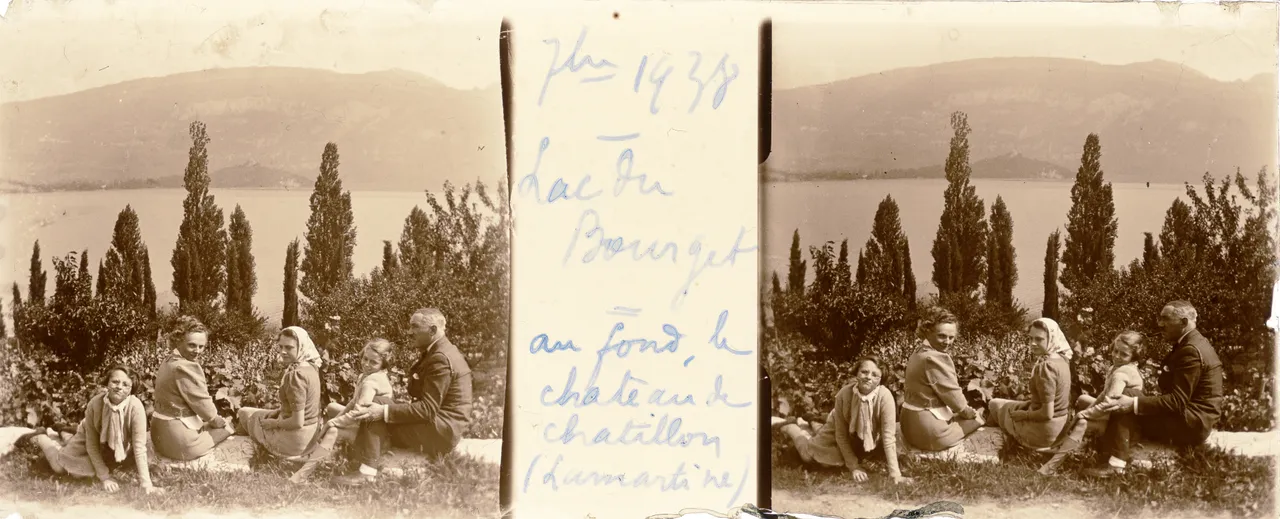 7bre 1938
Lac du
Bourget
au fond, le
chateau de
chatillon
(Lamartine)